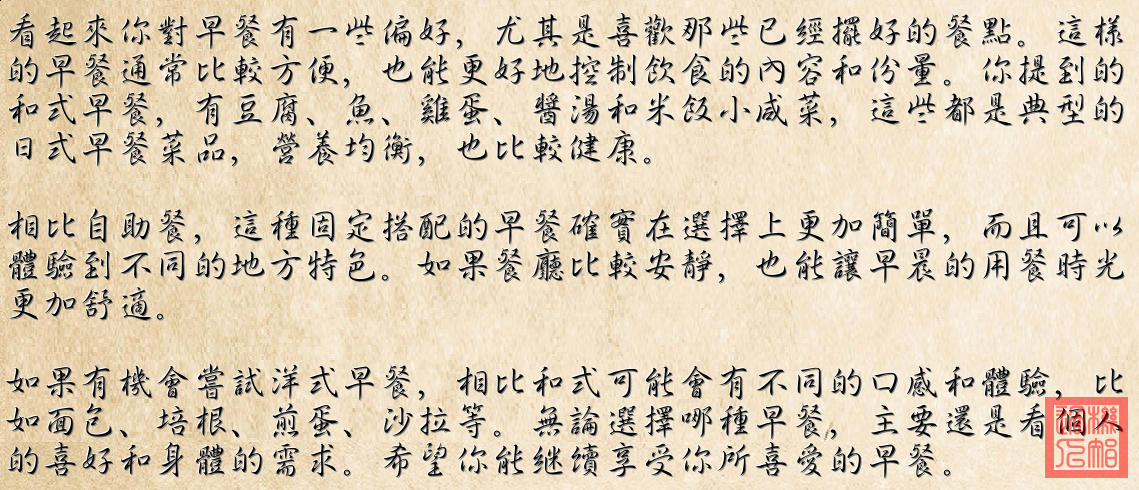 看起來你對早餐有一些偏好，尤其是喜歡那些已經擺好的餐點。這樣
的早餐通常比較方便，也能更好地控制飲食的內容和份量。你提到的
和式早餐，有豆腐、魚、雞蛋、醬湯和米飯小咸菜，這些都是典型的
日式早餐菜品，營養均衡，也比較健康。
相比自助餐，這種固定搭配的早餐確實在選擇上更加簡單，而且可以
體驗到不同的地方特色。如果餐廳比較安靜，也能讓早晨的用餐時光
更加舒適。
如果有機會嘗試洋式早餐，相比和式可能會有不同的口感和體驗，比
如面包、培根、煎蛋、沙拉等。無論選擇哪種早餐，主要還是看個人
的喜好和身體的需求。希望你能继續享受你所喜愛的早餐。